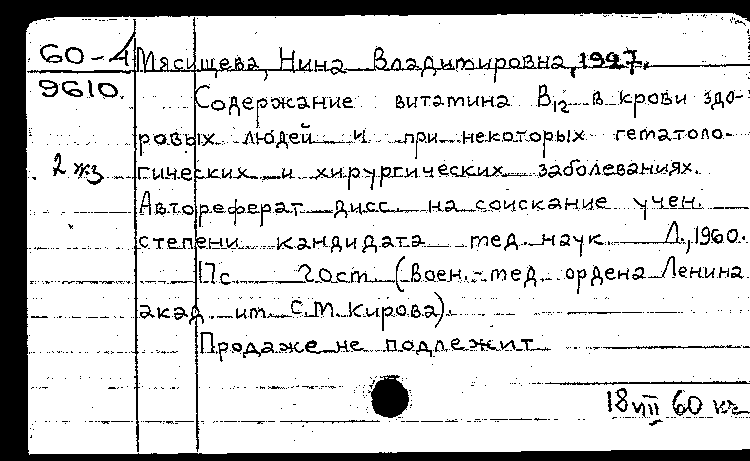 60-4 Мясищева, Нина Владимировна, 1927.
9610. Содержание витамина В12 в крови здо-
ровых людей и при некоторых гематоло-
2 жз гических и хирургических заболеваниях.
Автореферат дисс. на соискание учен.
степени кандидата мед. наук Л., 1960.
17с 20см (Воен.-мед. ордена Ленина
акад им. С.М. Кирова).
Продаже не подлежит
18 VIII 60 кг